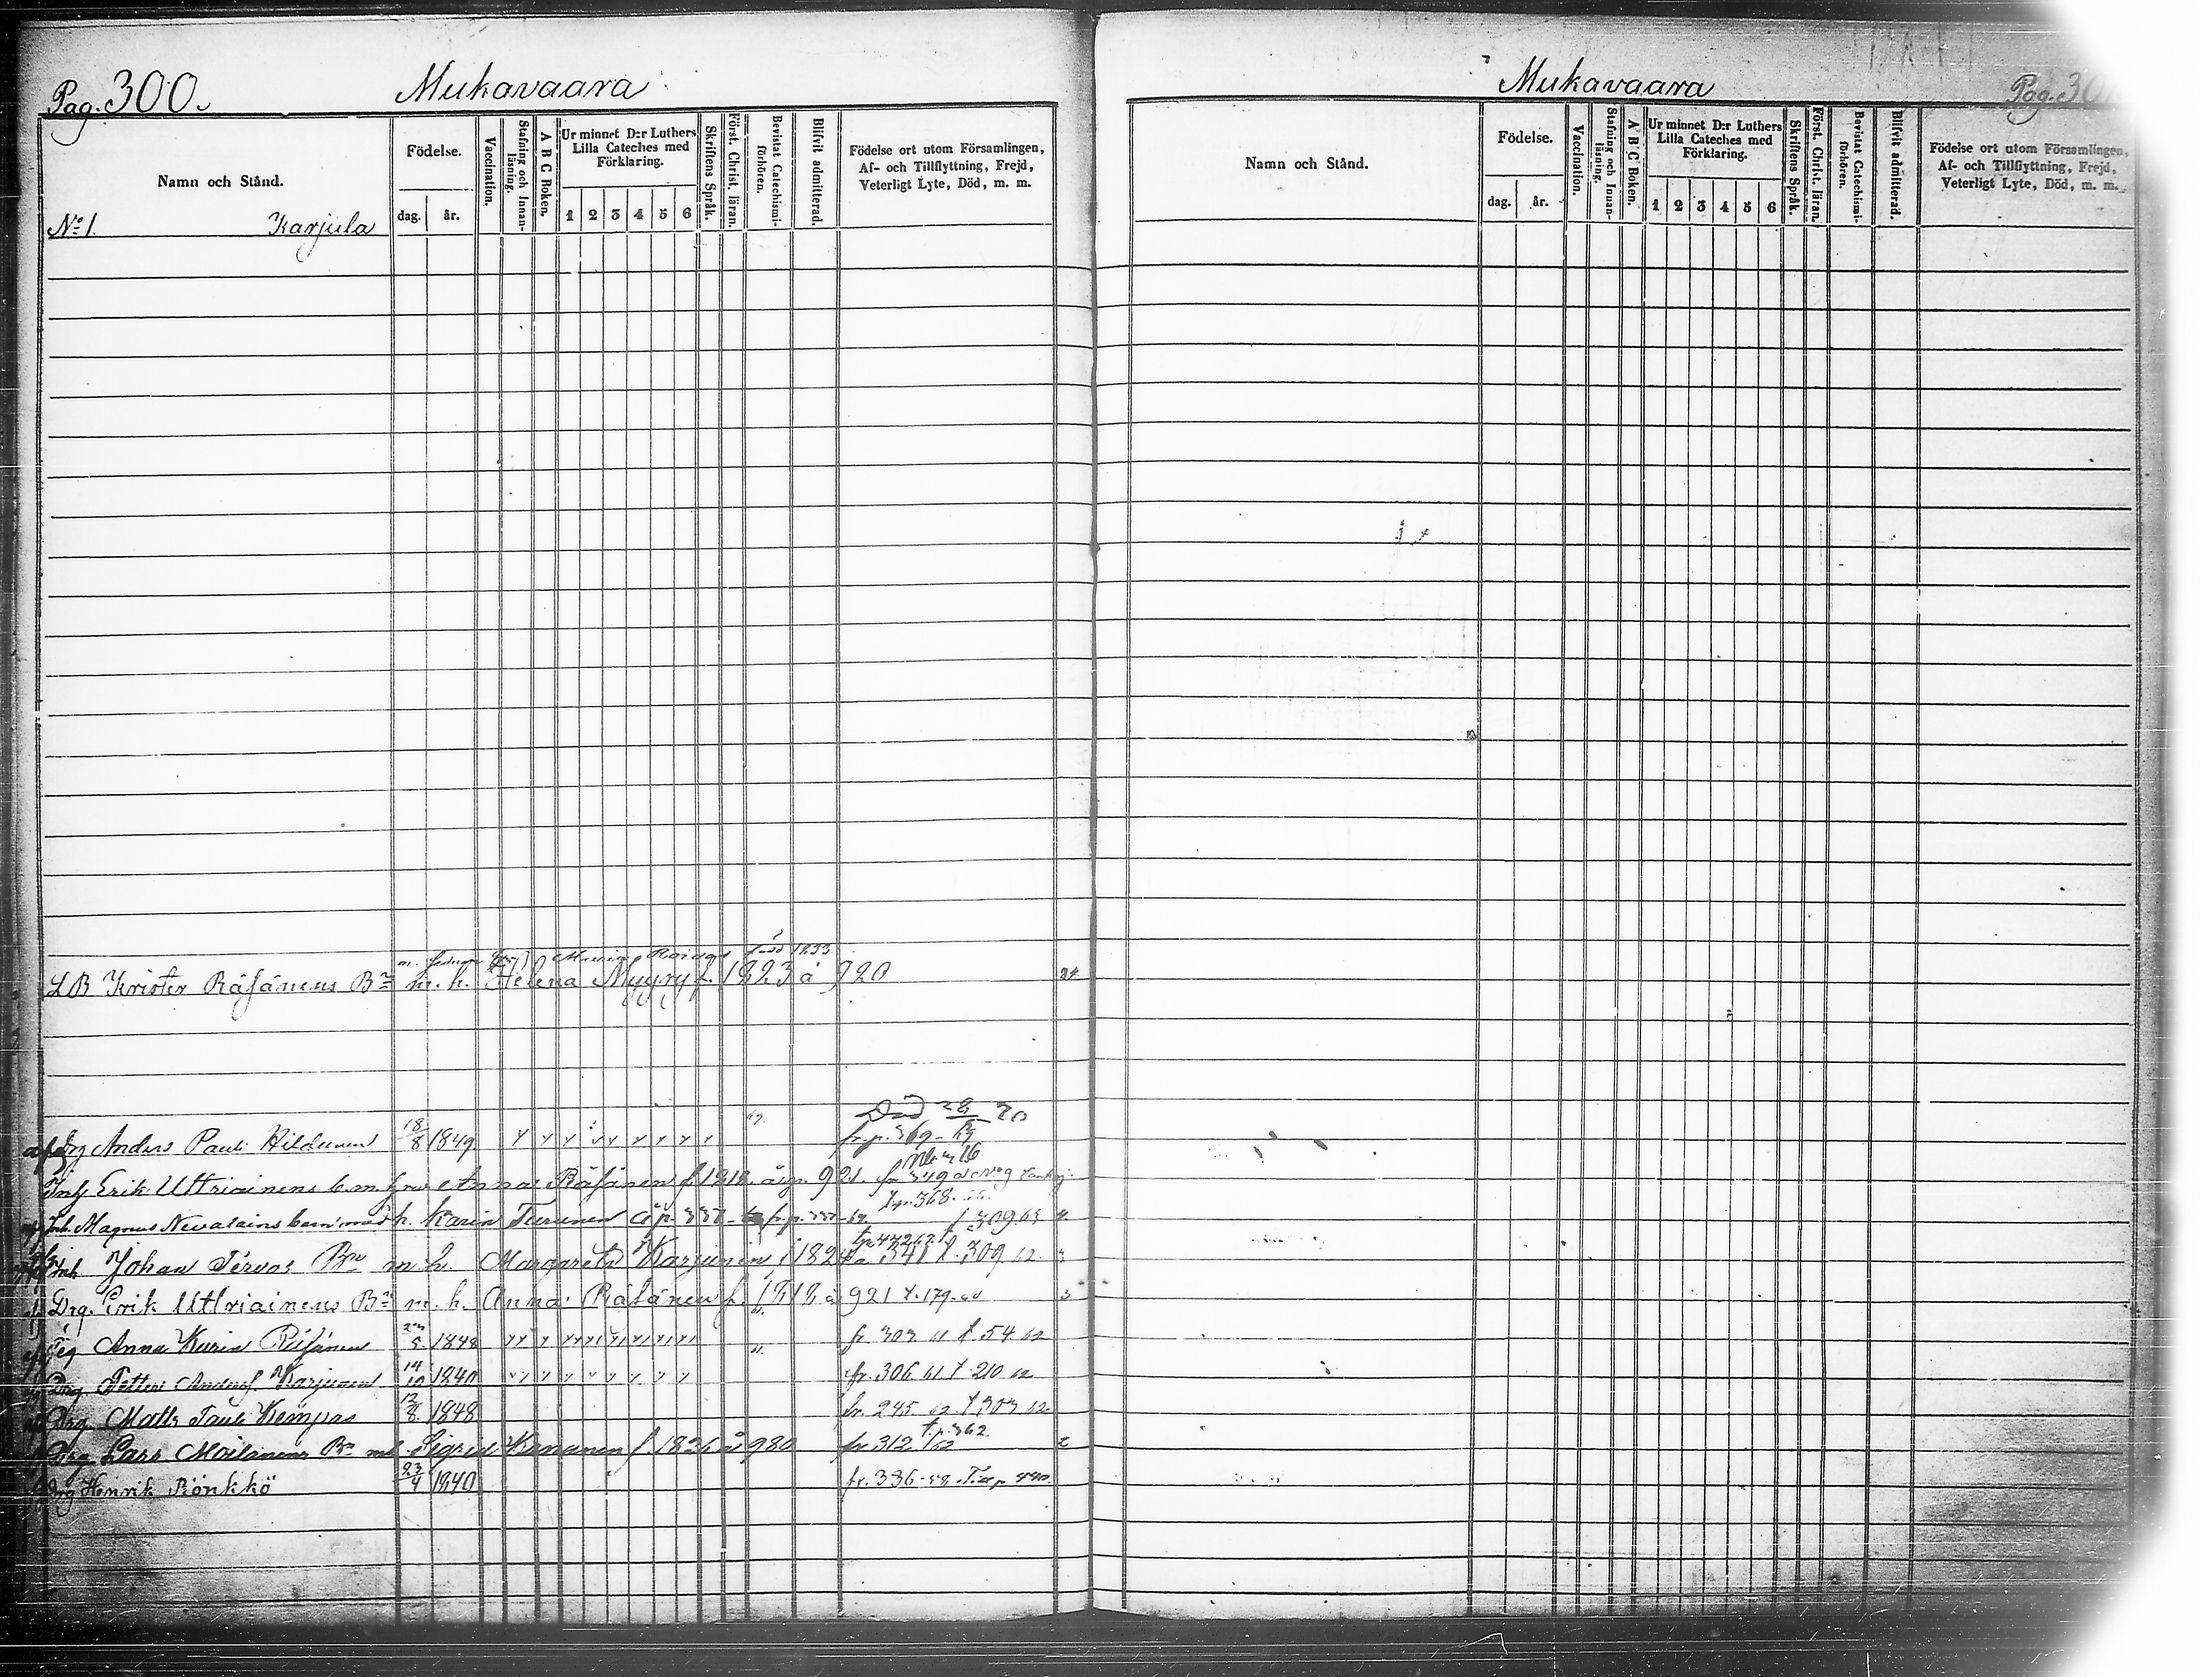 Pag. 300. Mukavaara
Namn och Stånd.
Födelse.
dag. år.
Vaccination.
Stafning och Innan-läsning.
A B C Boken.
Ur minnet D:r Luthers Lilla Cateches med Förklaring.
1 2 3 4 5 6
Skriftens Språk.
Först. Christ. läran.
Bevistat Catechismi-förhören.
Blifvit admitterad.
Födelse ort utom Församlingen,
Af- och Tillflyttning, Frejd,
Veterligt Lyte, Död, m. m.
No 1. Karjula
Maria Roivas född 1833
LB Krister Räsänens Bn m. h. Helena Myyry f. 1823 å 920
Död 70
Drg Anders Paul: Hildunen 18/8 1849 fr. p. 369
Inh Erik Uttriainens b. m. hru Anna Räsänen f. 1818 å p. 921. fr 349
t. p. 368.
Inh. Magnus Nevalains barn med h. Karin Turunen å p. 337 t. 309 63 4.
Inh Johan Tervos Bn m. h. Margareta Karjunen f 1824 a. 341 t. 309 62. 3
Drg. Erik Uttriainens Bn m. h. Anna Räsänen f. 1818 å 921 t. 179 3
Peg Anna Karin Räsänen 5. 1848 fr. 303 61 t 54 62
Drg. Petter Andersf. Karjunen 14/10 1840 fr. 306. 61 t. 210 62
Drg Matts Paul: Kempas 12/8. 1848 fr. 245. 62. t 303 62
t. p. 362
Drg Lars Moilanens Bn mh. Sigrid Kananen f. 1826 å 980 fr 312 62 2
Drg Henrik Rönkkö 23/4 1840 fr. 336
Mukavaara Pag.
Namn och Stånd.
Födelse.
dag. år.
Vaccination.
Stafning och Innan-läsning.
A B C Boken.
Ur minnet D:r Luthers Lilla Cateches med Förklaring.
1 2 3 4 5 6
Skriftens Språk.
Först. Christ. läran.
Bevistat Catechismi-förhören.
Blifvit admitterad.
Födelse ort utom Församlingen,
Af- och Tillflyttning, Frejd,
Veterligt Lyte, Död, m. m.